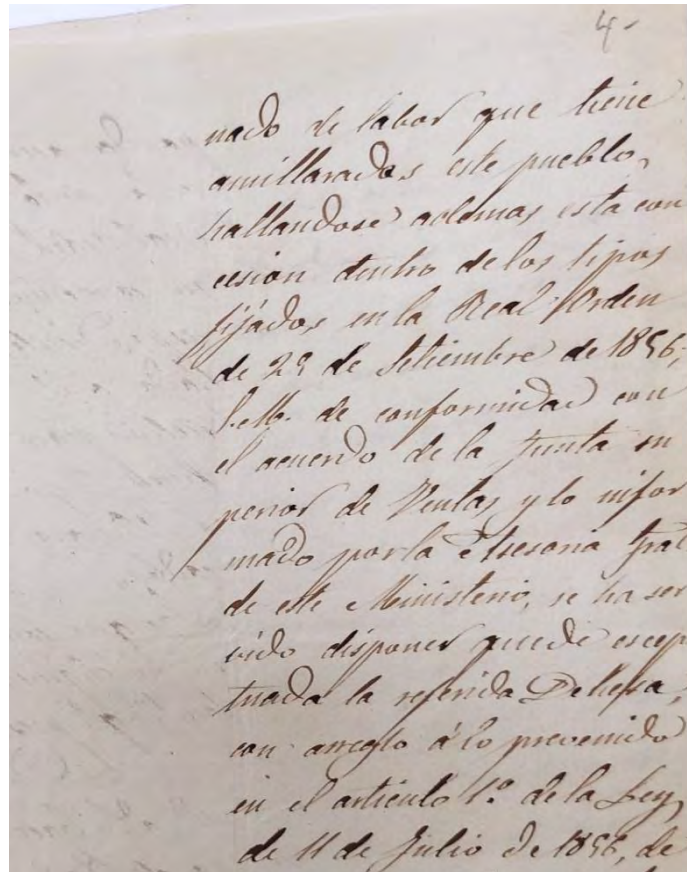 4-
nado de labor que tiene
amillarados este pueblo,
hallandose ademas esta con
cesion dentro de los tipos
fijados en la Real Orden
de 23 de Setiembre de 1856;
S.M. de conformidad con
el acuerdo de la Junta su
perior de Ventas y lo infor
mado por la Asesoria gral
de este Ministerio, se ha ser
vido disponer quede escep
tuada la referida Dehesa,
con arreglo á lo prevenido
en el articulo 1.º de la Ley
de 11 de Julio de 1856, de